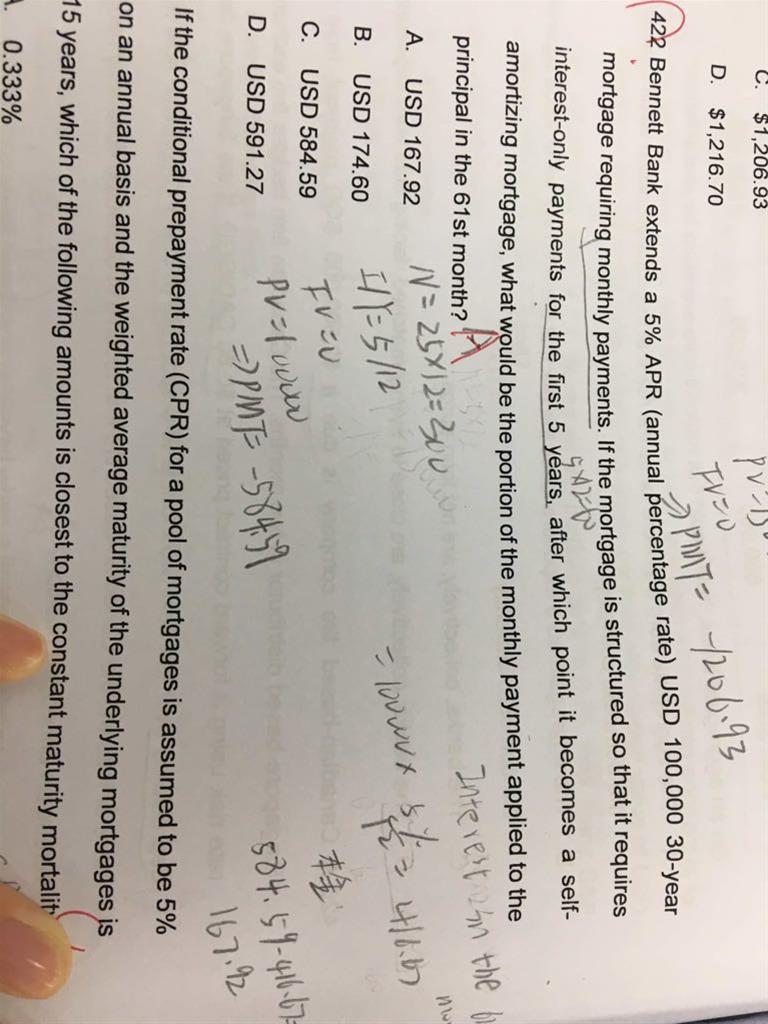 C. $1,206.93
D. $1,216.70
FV=0
⇒ PMT= -1206.93
422 Bennett Bank extends a 5% APR (annual percentage rate) USD 100,000 30-year
mortgage requiring monthly payments. If the mortgage is structured so that it requires
5×12=60
interest-only payments for the first 5 years, after which point it becomes a self-
amortizing mortgage, what would be the portion of the monthly payment applied to the
principal in the 61st month? A
Interest in the
A. USD 167.92
N=25×12=300
=100000×5%/12=416.67
B. USD 174.60
I/Y=5/12
C. USD 584.59
FV=0
本金
D. USD 591.27
PV=100000
584.59-416.67=
⇒PMT= -584.59
167.92
If the conditional prepayment rate (CPR) for a pool of mortgages is assumed to be 5%
on an annual basis and the weighted average maturity of the underlying mortgages is
15 years, which of the following amounts is closest to the constant maturity
0.333%